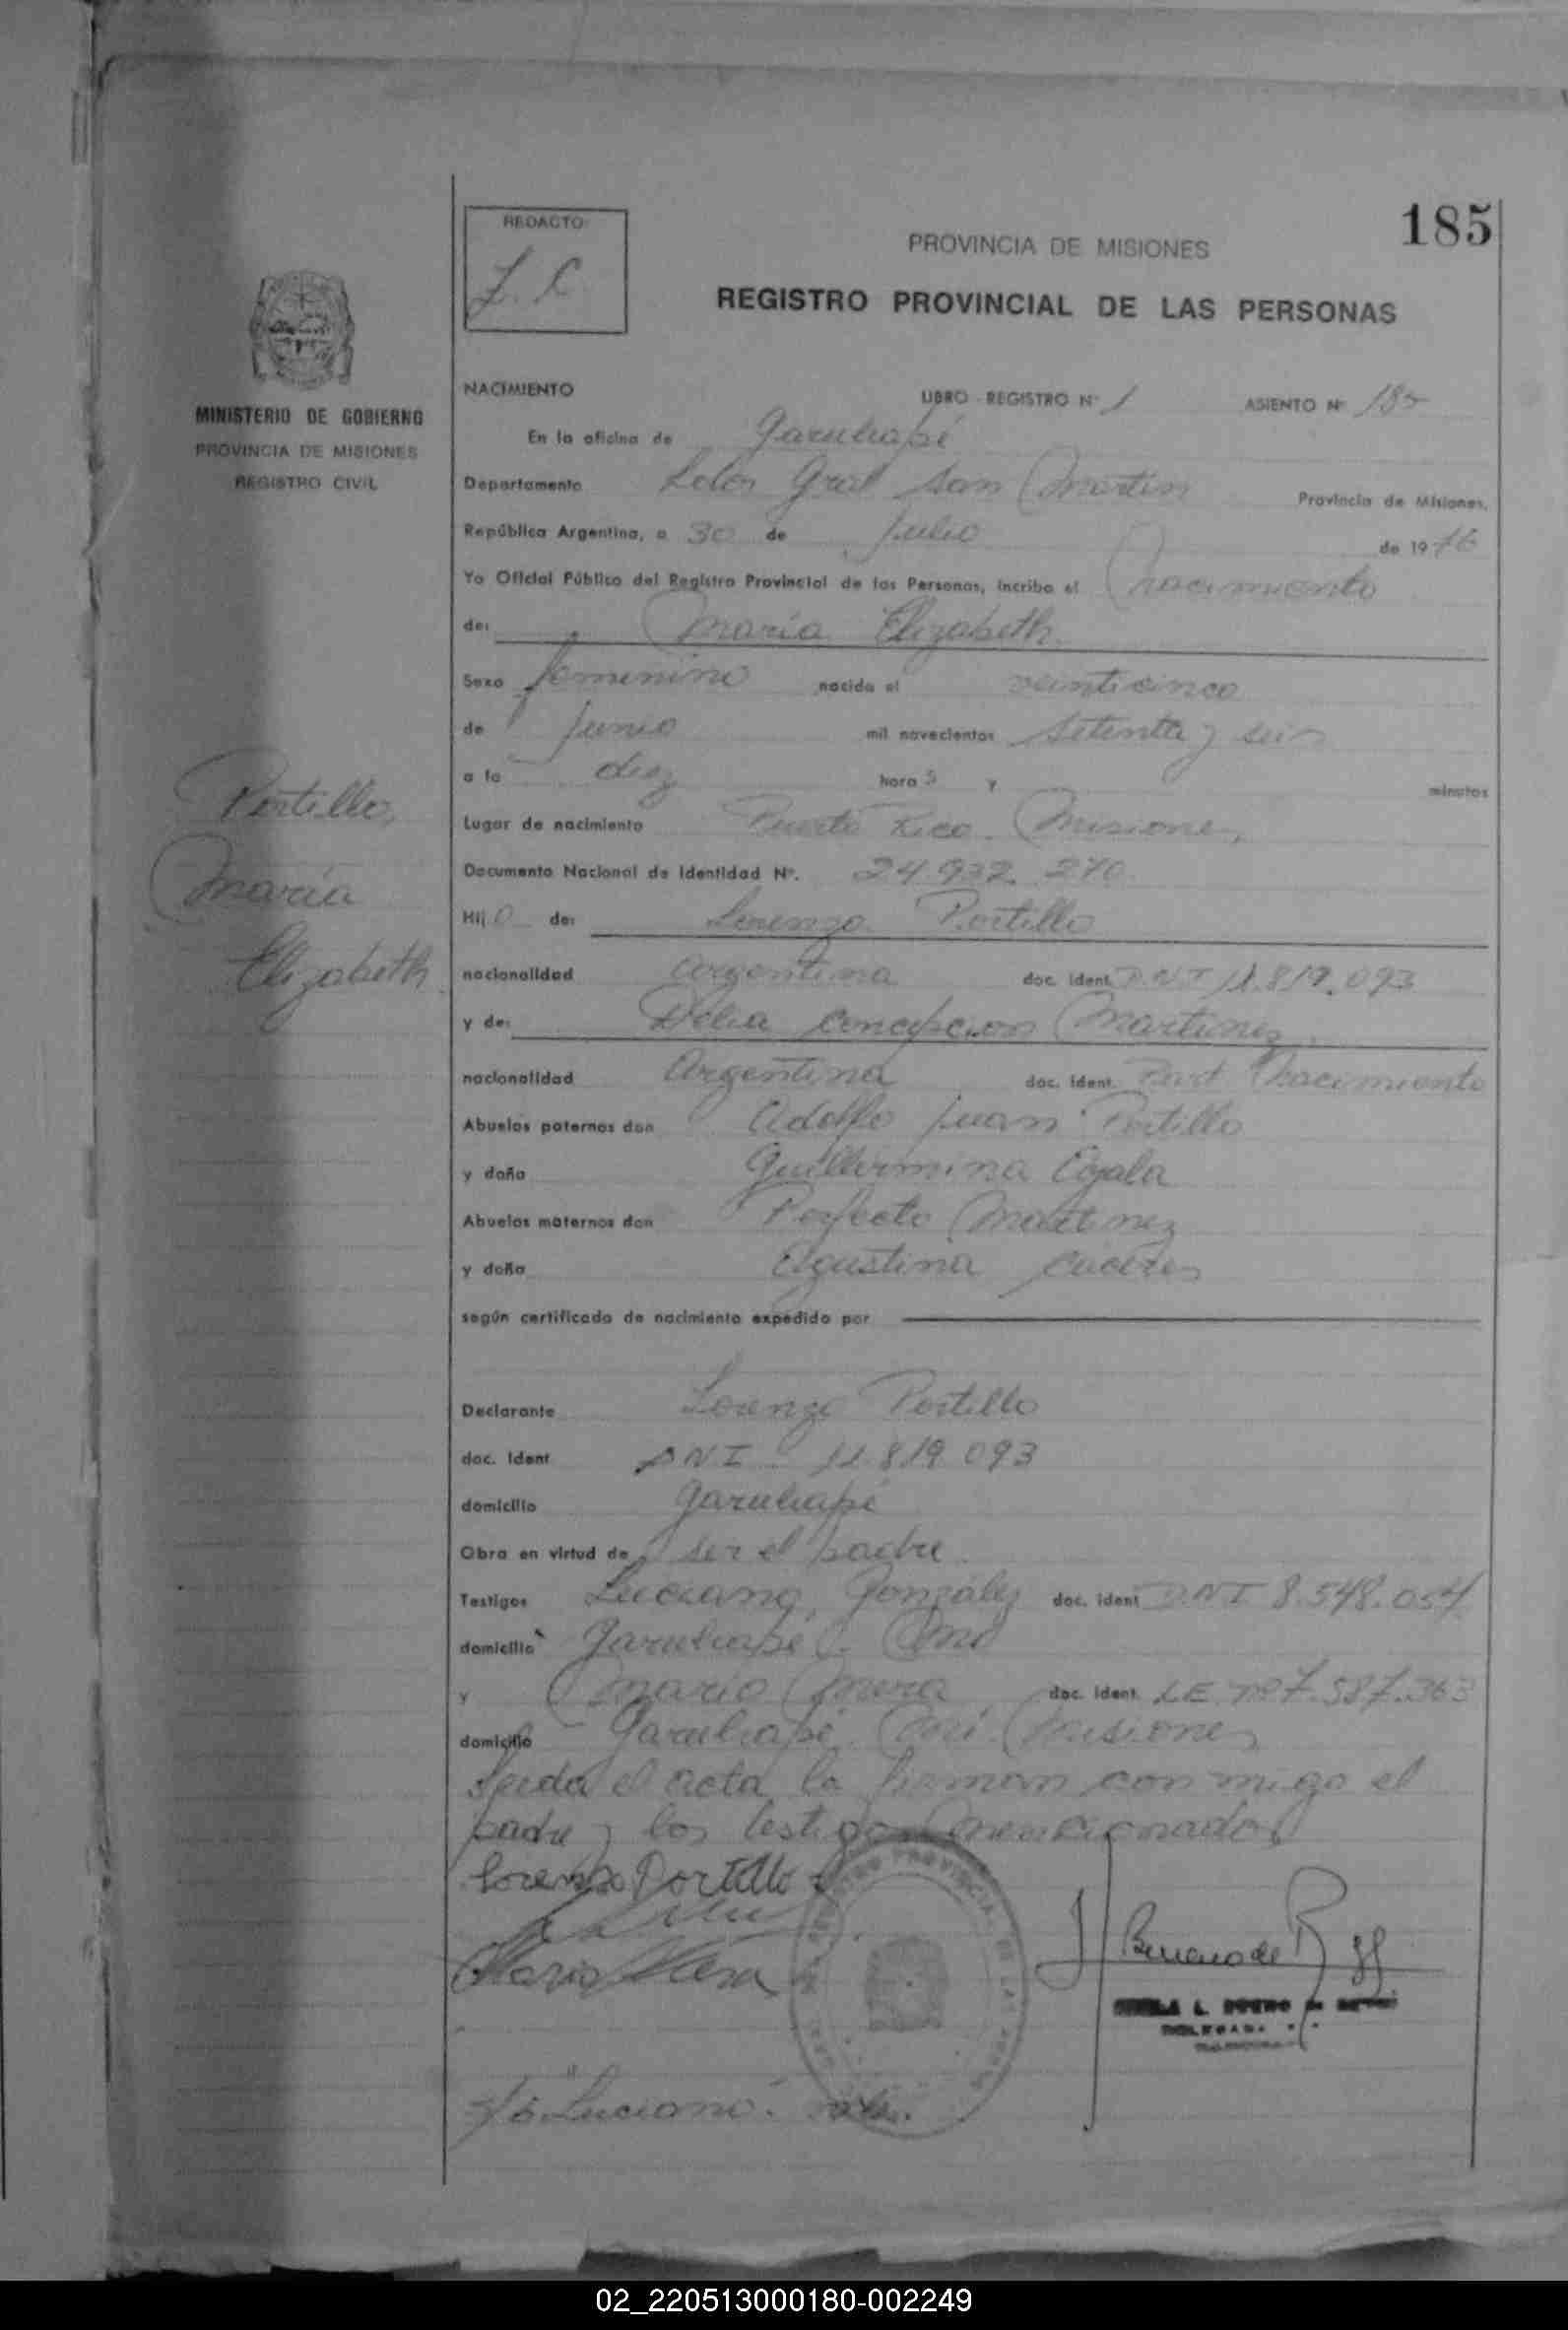 185
REDACTO
Z. C.
PROVINCIA DE MISIONES
REGISTRO PROVINCIAL DE LAS PERSONAS
MINISTERIO DE GOBIERNO
PROVINCIA DE MISIONES
REGISTRO CIVIL
NACIMIENTO LIBRO - REGISTRO Nº 1 ASIENTO Nº 185
En la oficina de Garuhapé
Departamento Ldor Gral San Martin Provincia de Misiones,
República Argentina, a 30 de Julio de 1976
Yo Oficial Público del Registro Provincial de las Personas, incribo el nacimiento
de: María Elizabeth
Sexo femenino nacido el veinticinco
de Junio mil novecientos setenta y seis
a la diez hora s y minutos
Portillo,
María
Elizabeth
Lugar de nacimiento Puerto Rico. Misiones,
Documento Nacional de Identidad Nº. 24.932.270
Hij o de: Lorenzo Portillo
nacionalidad argentina doc. ident. D.N.I 11.819.093
y de: Delia Concepcion Martinez
nacionalidad Argentina doc. ident. Part Nacimiento
Abuelos paternos don Adolfo Juan Portillo
y doña Guillermina
Abuelos maternos don Perfecto Martinez
y doña Agustina Caceres
según certificado de nacimiento expedido por
Declarante Lorenzo Portillo
doc. Ident DNI 11.819.093
domicilio Garuhapé
Obra en virtud de ser el padre
Testigos Luciano González doc. ident D.N.I 8.548.054
domicilio Garuhapé
y Mario Mera doc. ident. L.E. nº 7.587.363
domicilio Garuhapé Mní Misiones
Leida el acta la firman con migo el
padre y los testigos mencionados
Lorenzo Portillo
Mario Mera
REGISTRO PROVINCIAL DE LAS PERSONAS
DELEGADA
s/b "Luciano". vale.
02_220513000180-002249